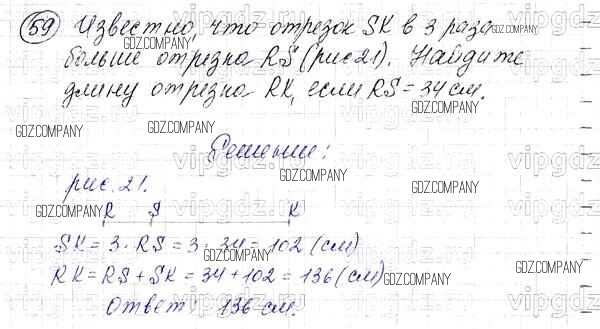 59 Известно, что отрезок SK в 3 раза
больше отрезка RS (рис 21). Найдите
длину отрезка RK, если RS = 34 см.
Решение:
рис. 21.
R S K
SK = 3 · RS = 3 · 34 = 102 (см)
RK = RS + SK = 34 + 102 = 136 (см)
Ответ: 136 см.
GDZ.COMPANY
vipgdz.ru